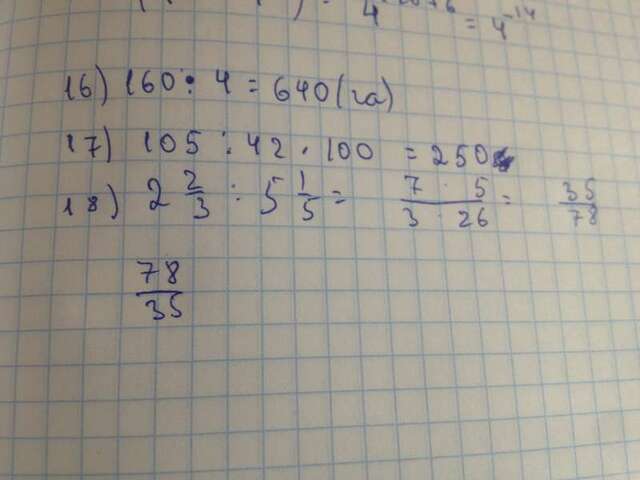 4 = 4⁻¹⁴
16) 160 · 4 = 640 (га)
17) 105 : 42 · 100 = 250
18) 2 2/3 : 5 1/5 = 7 · 5 / 3 · 26 = 35/78
78/35